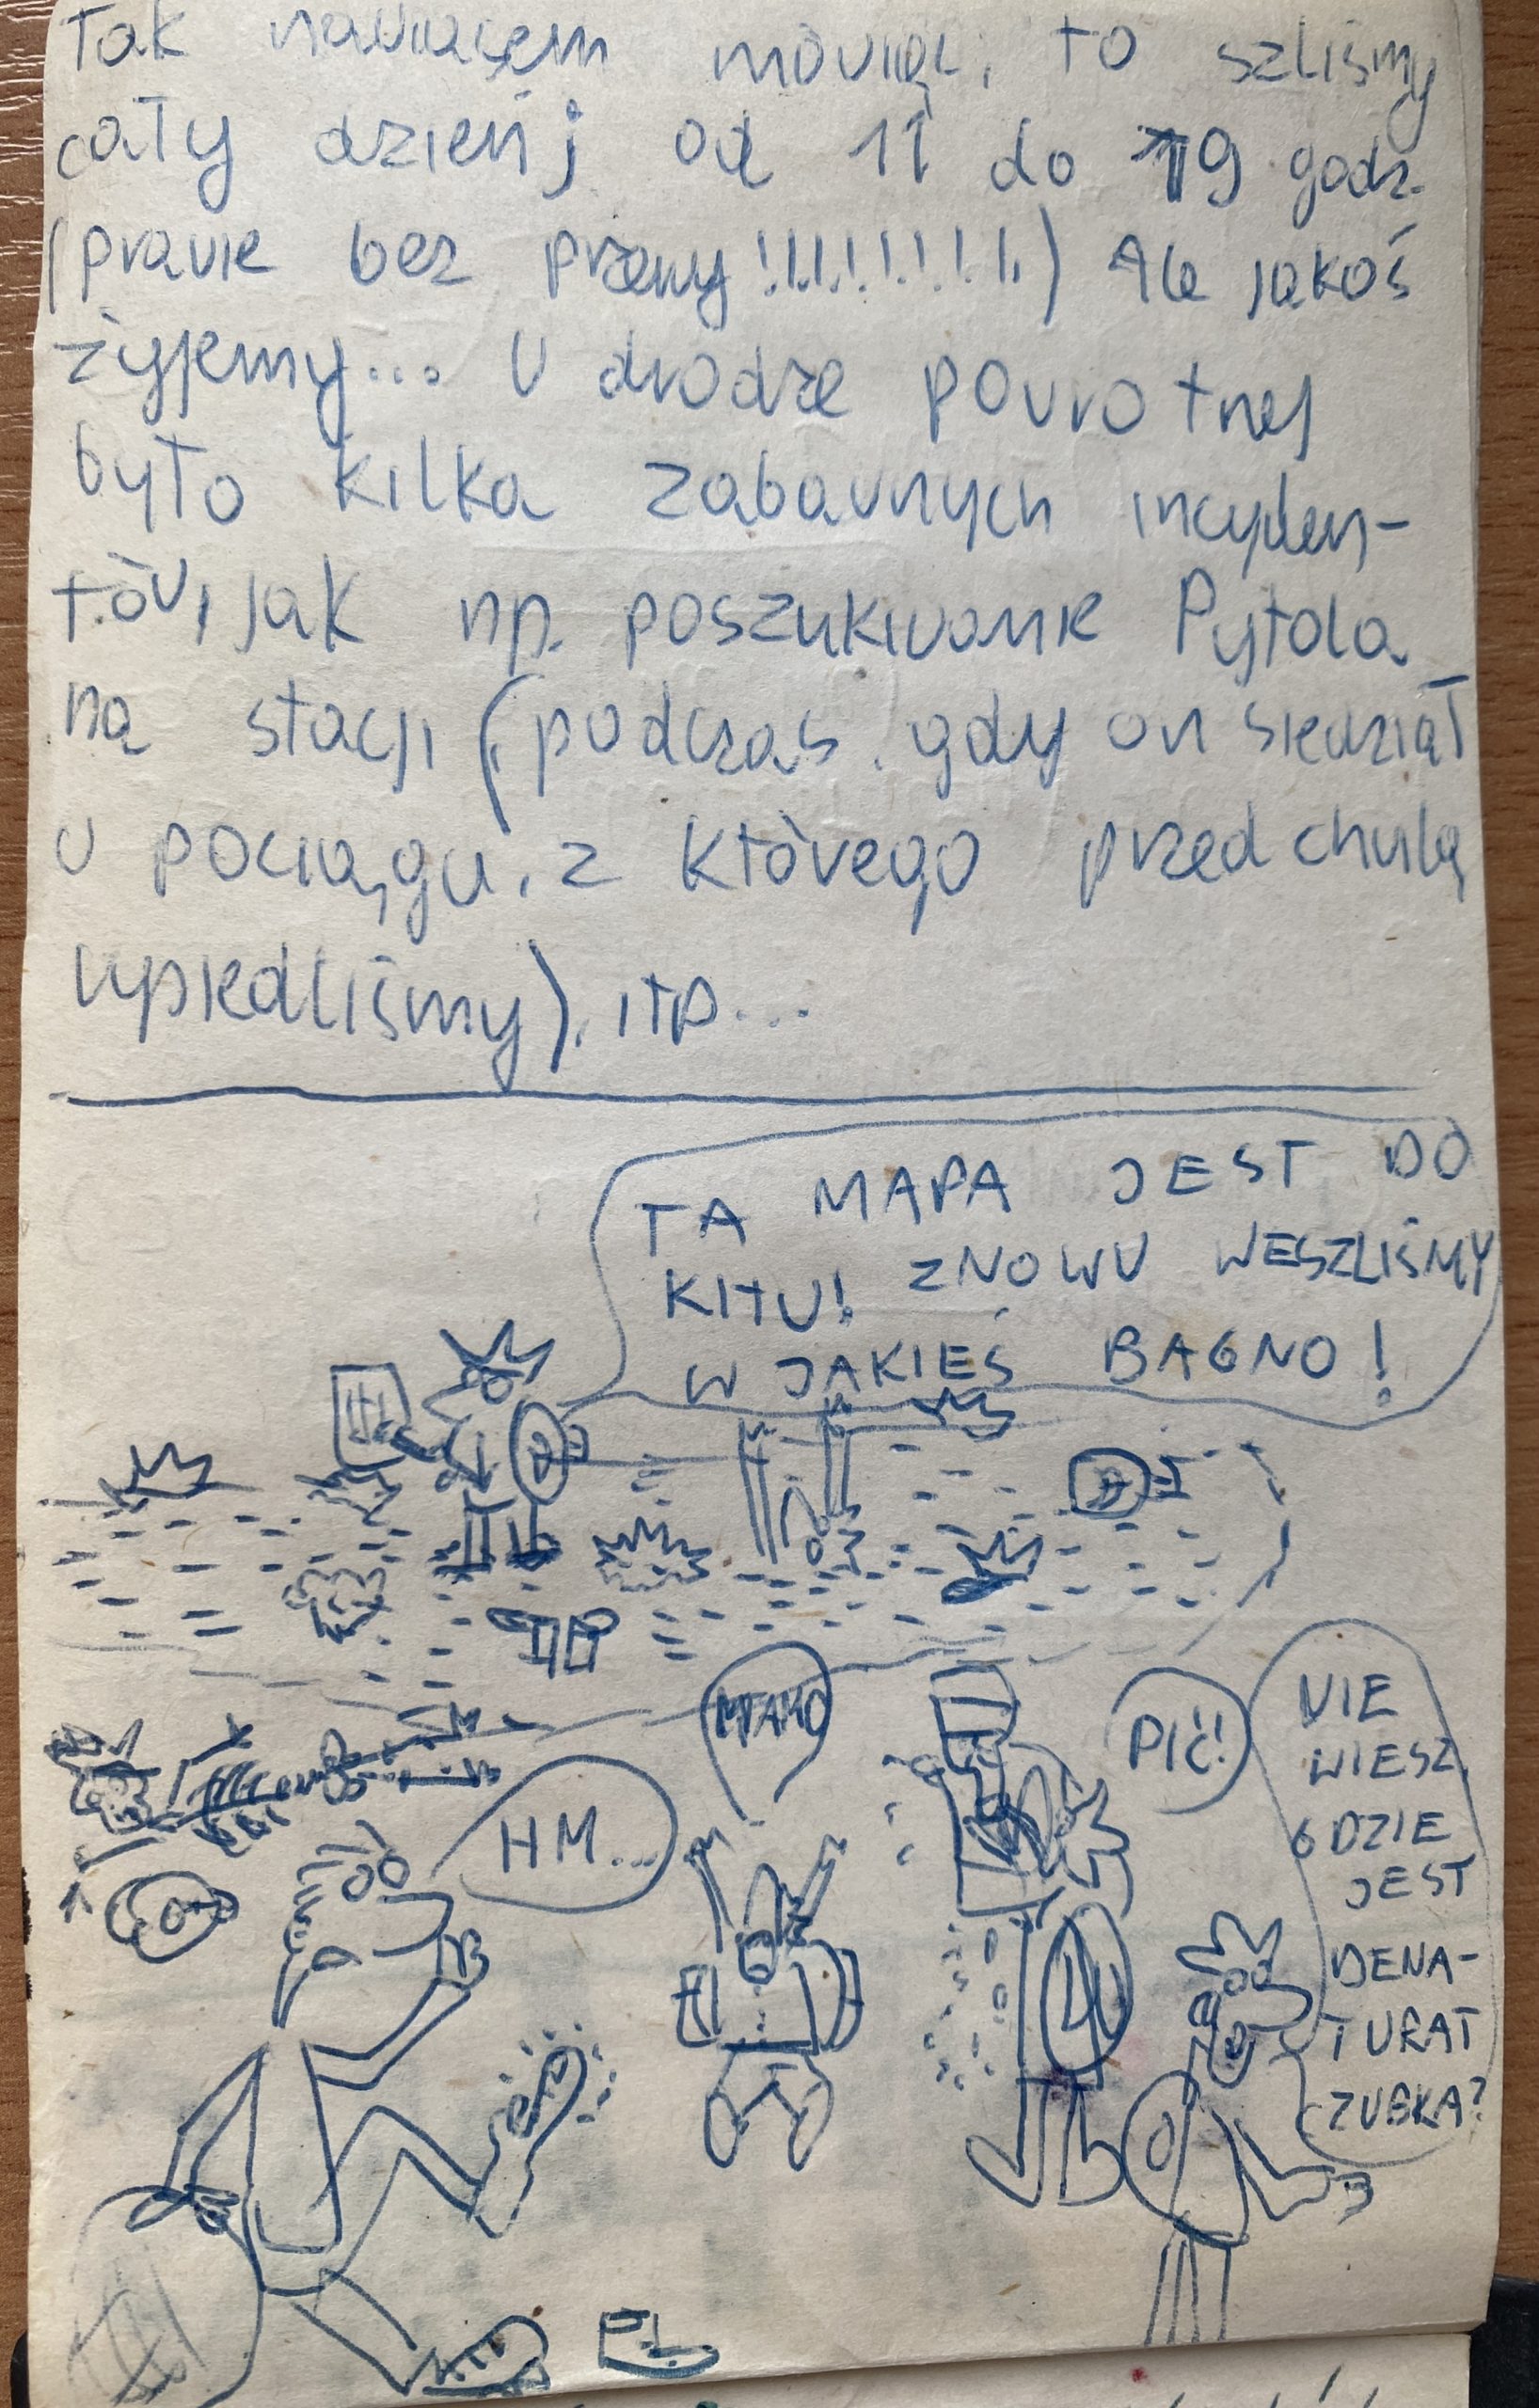 Tak nawiasem mówiąc, to szliśmy
cały dzień, od 11 do 19 godz.
(prawie bez przerwy!!!!!!!!!) Ale jakoś
żyjemy... W drodze powrotnej
było kilka zabawnych incyden-
tów, jak np. poszukiwanie Pytola
na stacji (podczas gdy on siedział
w pociągu, z którego przed chwilą
wysiedliśmy), itp...
TA MAPA JEST DO
KITU! ZNOWU WESZLIŚMY
W JAKIEŚ BAGNO!
MAMO
PIĆ!
NIE
WIESZ
GDZIE
JEST
DENA-
TURAT
ZUBKA?
HM...